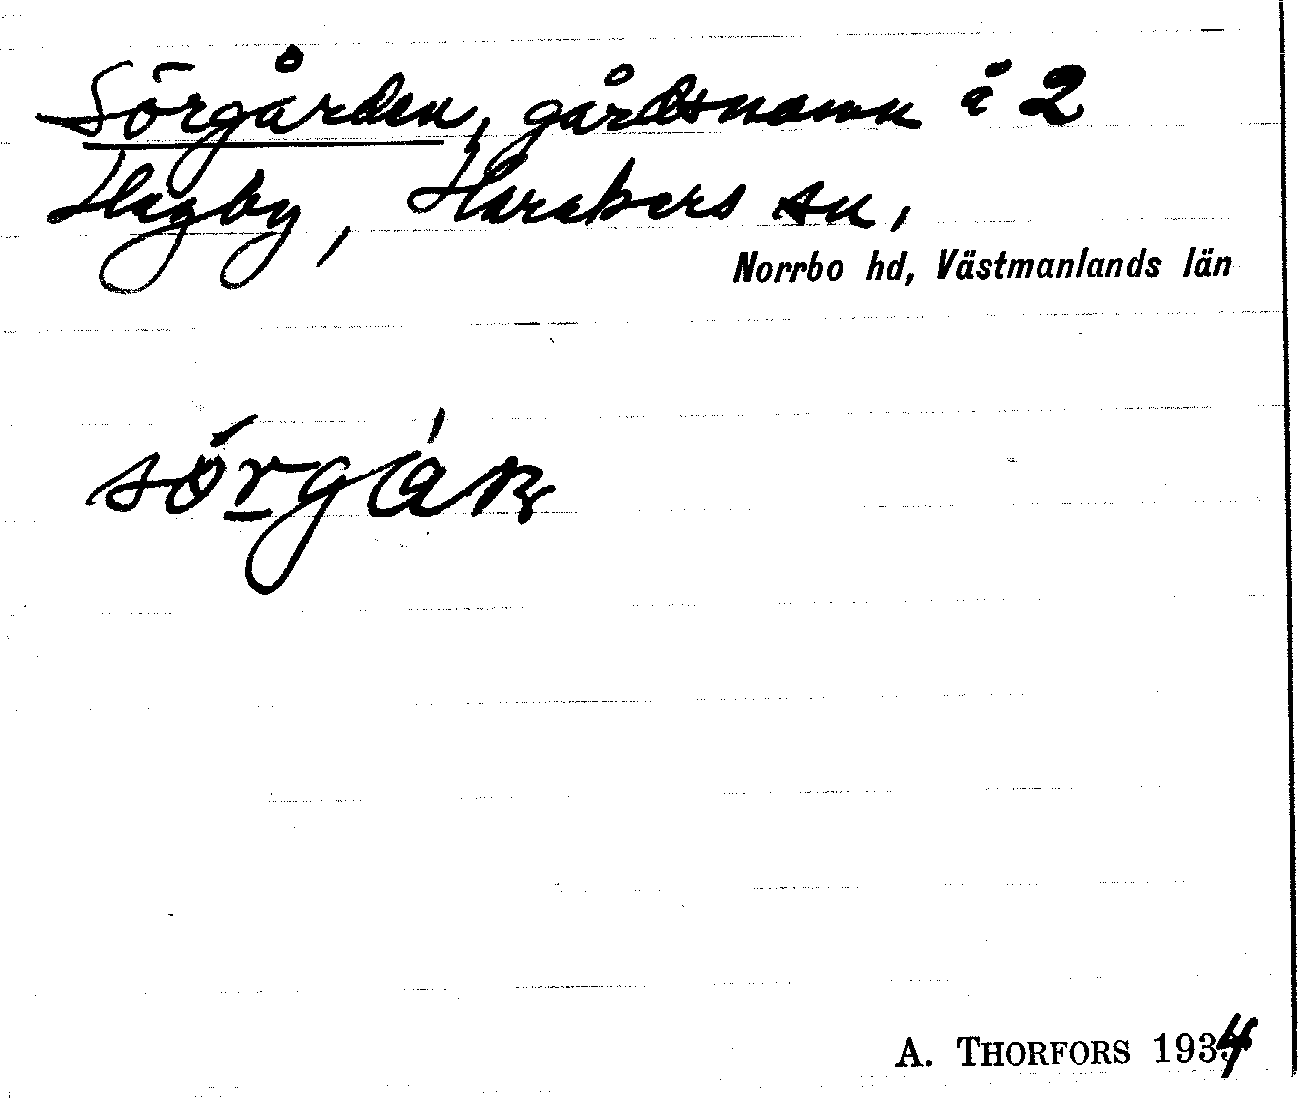 Sörgården, gårdsnamn å 2
Hagby, Harakers sn,
Norrbo hd, Västmanlands län
A. THORFORS 1934